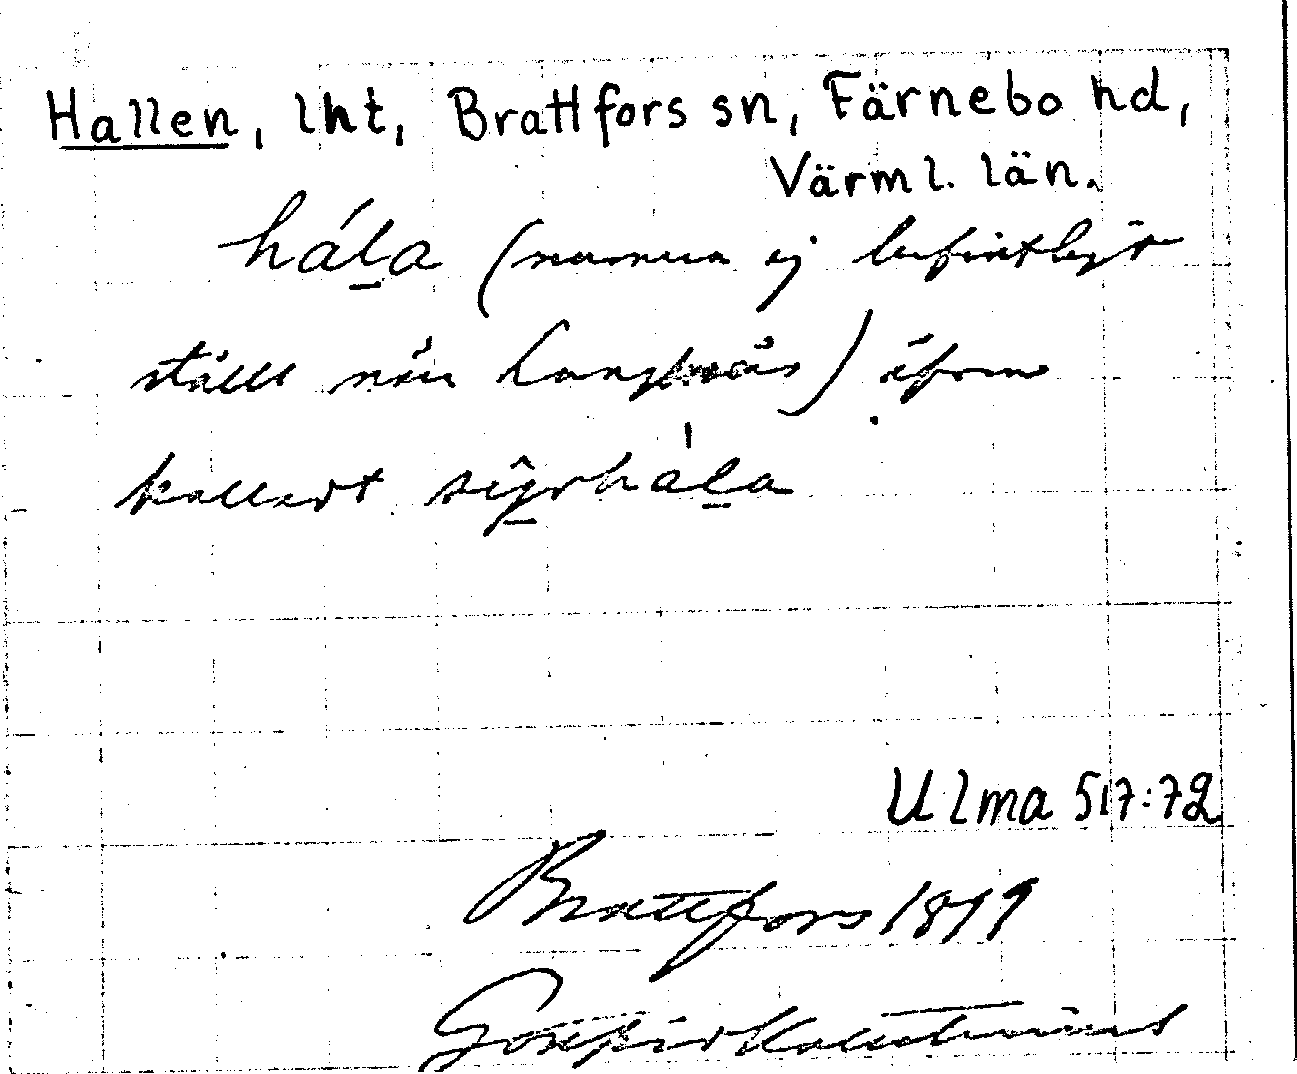 Hallen, lht, Brattfors sn, Färnebo hd,
Värml. län.
håla (numera ej befintligt
ställe när Långnäs) äfven
kallart sigrhåla
Ulma 517:72
Brattfors 1879